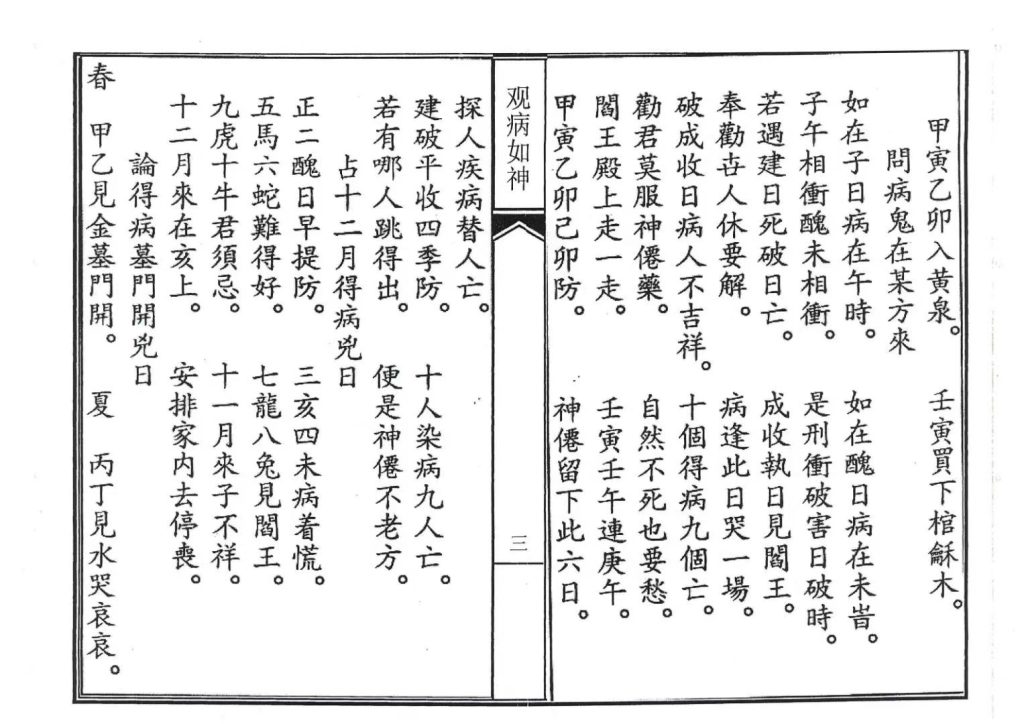 甲寅乙卯入黃泉。 壬寅買下棺龢木。
問病鬼在某方來
如在子日病在午時。 如在醜日病在未旹。
子午相衝醜未相衝。 是刑衝破害日破時。
若遇建日死破日亡。 成收執日見閻王。
奉勸卋人休要解。 病逢此日哭一場。
破成收日病人不吉祥。 十個得病九個亡。
勸君莫服神僊藥。 自然不死也要愁。
閻王殿上走一走。 壬寅壬午連庚午。
甲寅乙卯己卯防。 神僊留下此六日。
观病如神
三
探人疾病替人亡。 十人染病九人亡。
建破平收四季防。 便是神僊不老方。
若有哪人跳得出。
占十二月得病兇日
正二醜日早提防。 三亥四未病着慌。
五馬六蛇難得好。 七龍八兔見閻王。
九虎十牛君須忌。 十一月來子不祥。
十二月來在亥上。 安排家内去停喪。
論得病墓門開兇日
春 甲乙見金墓門開。 夏 丙丁見水哭哀哀。